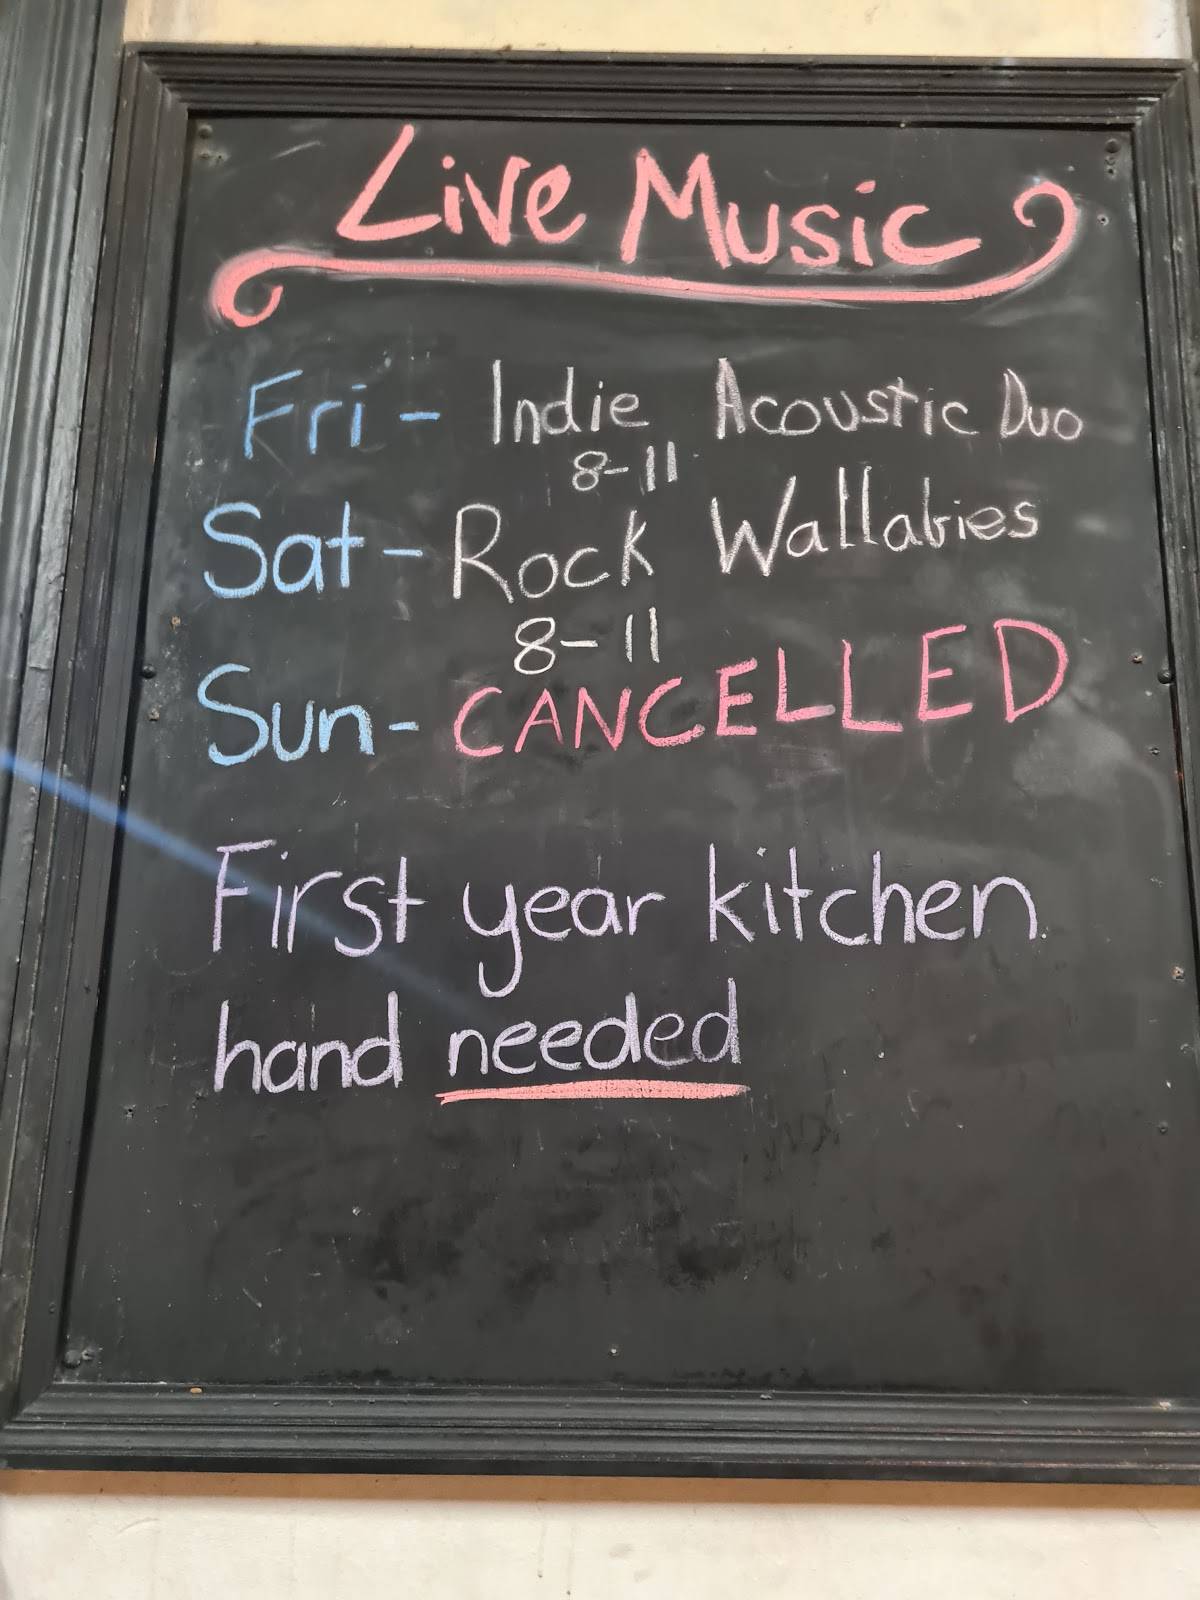 Live Music
Fri - Indie Acoustic Duo
8-11
Sat - Rock Wallabies
8-11
Sun - CANCELLED
First year kitchen
hand needed